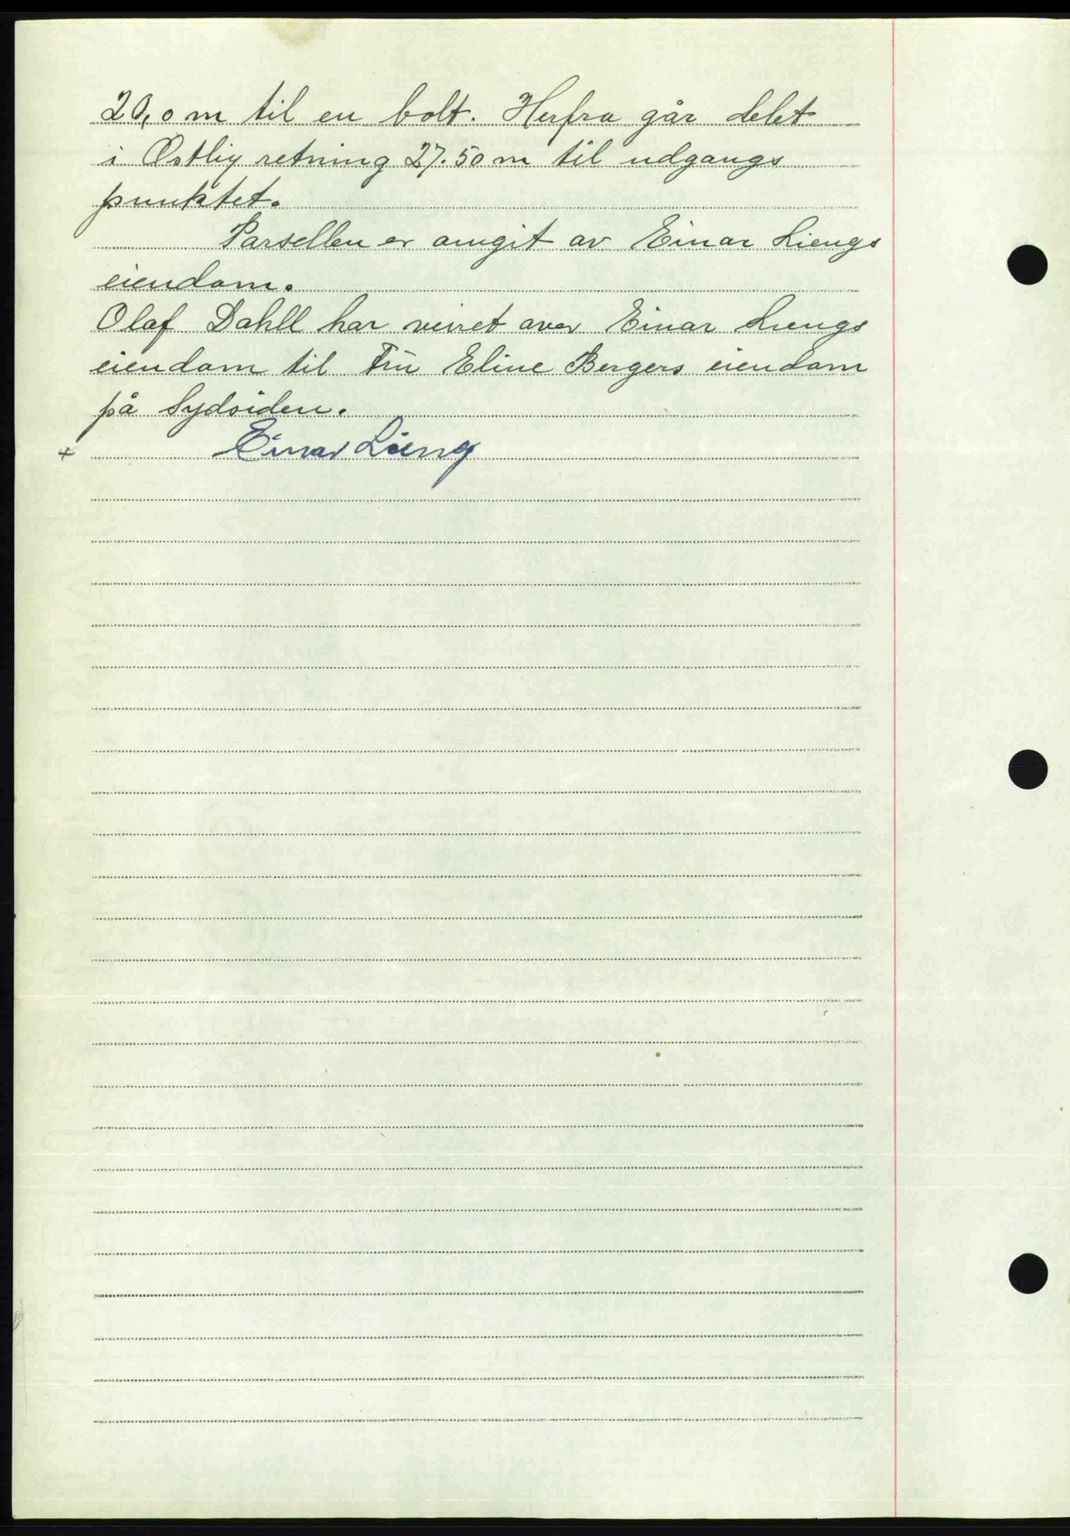 20,0 m til en bolt. Herfra går delet
i Østlig retning 27.50 m til udgangs
punktet.
Parsellen er omgit av Einar Liengs
eiendom.
Olaf Dahll har veiret over Einar Liengs
eiendom til Fru Eline Bergers eiendom
på Sydsiden.
+ Einar Lieng